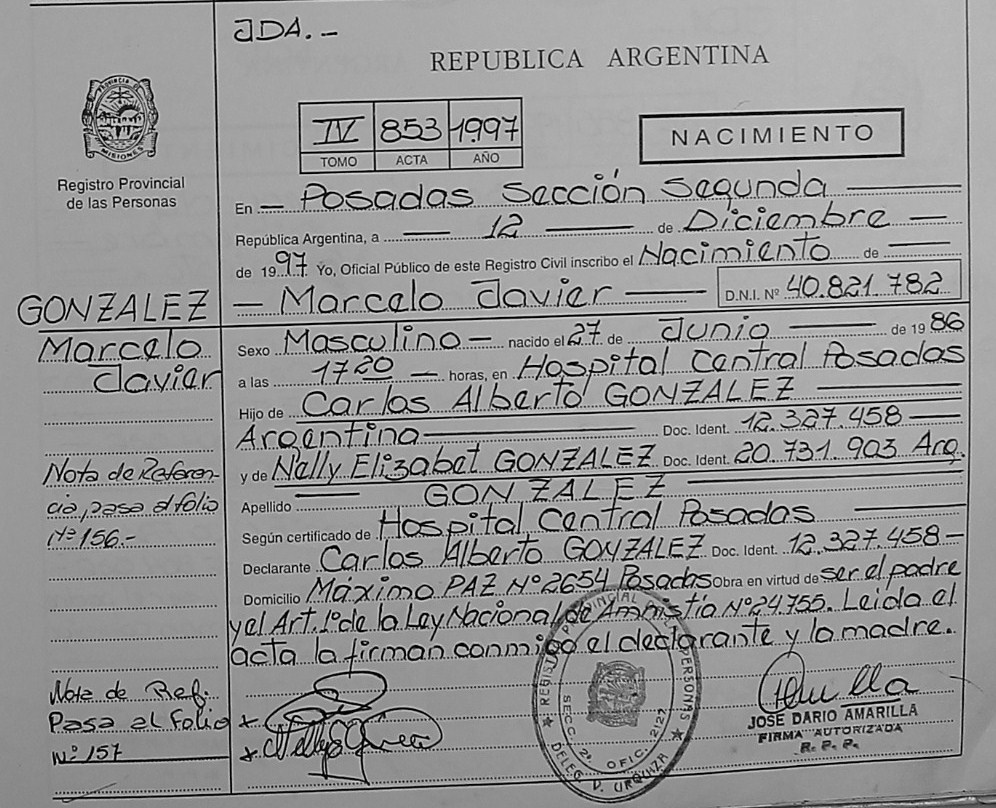 JDA.-
REPUBLICA ARGENTINA
PROVINCIA DE MISIONES
Registro Provincial
de las Personas
IV 853 1997
TOMO ACTA AÑO
NACIMIENTO
En — Posadas Sección Segunda —
República Argentina, a — 12 — de Diciembre —
de 1997 Yo, Oficial Público de este Registro Civil inscribo el Nacimiento de —
— Marcelo Javier — D.N.I. Nº 40.821.782
GONZALEZ
Marcelo
Javier
Sexo Masculino — nacido el 27 de Junio — de 1986
a las 17 20 — horas, en Hospital Central Posadas
Hijo de Carlos Alberto GONZALEZ —
Argentina — Doc. Ident. 12.327.458 —
y de Nelly Elizabet GONZALEZ Doc. Ident. 20.731.903 Arg.
Apellido — GONZALEZ —
Según certificado de Hospital Central Posadas —
Declarante Carlos Alberto GONZALEZ Doc. Ident. 12.327.458 —
Domicilio Máximo PAZ Nº 2654 Posadas Obra en virtud de ser el padre
y el Art. 1º de la Ley Nacional de Amnistía Nº 24.755. Leida el
acta la firman conmigo el declarante y la madre.
Nota de Referen-
cia, pasa al folio
Nº 156.-
Nota de Ref.
Pasa al Folio
Nº 157
REGISTRO PROVINCIAL PERSONAS
SECC. 2ª. OFIC. 2127
DELEG. V. URQUIZA
JOSE DARIO AMARILLA
FIRMA AUTORIZADA
R. P. P.